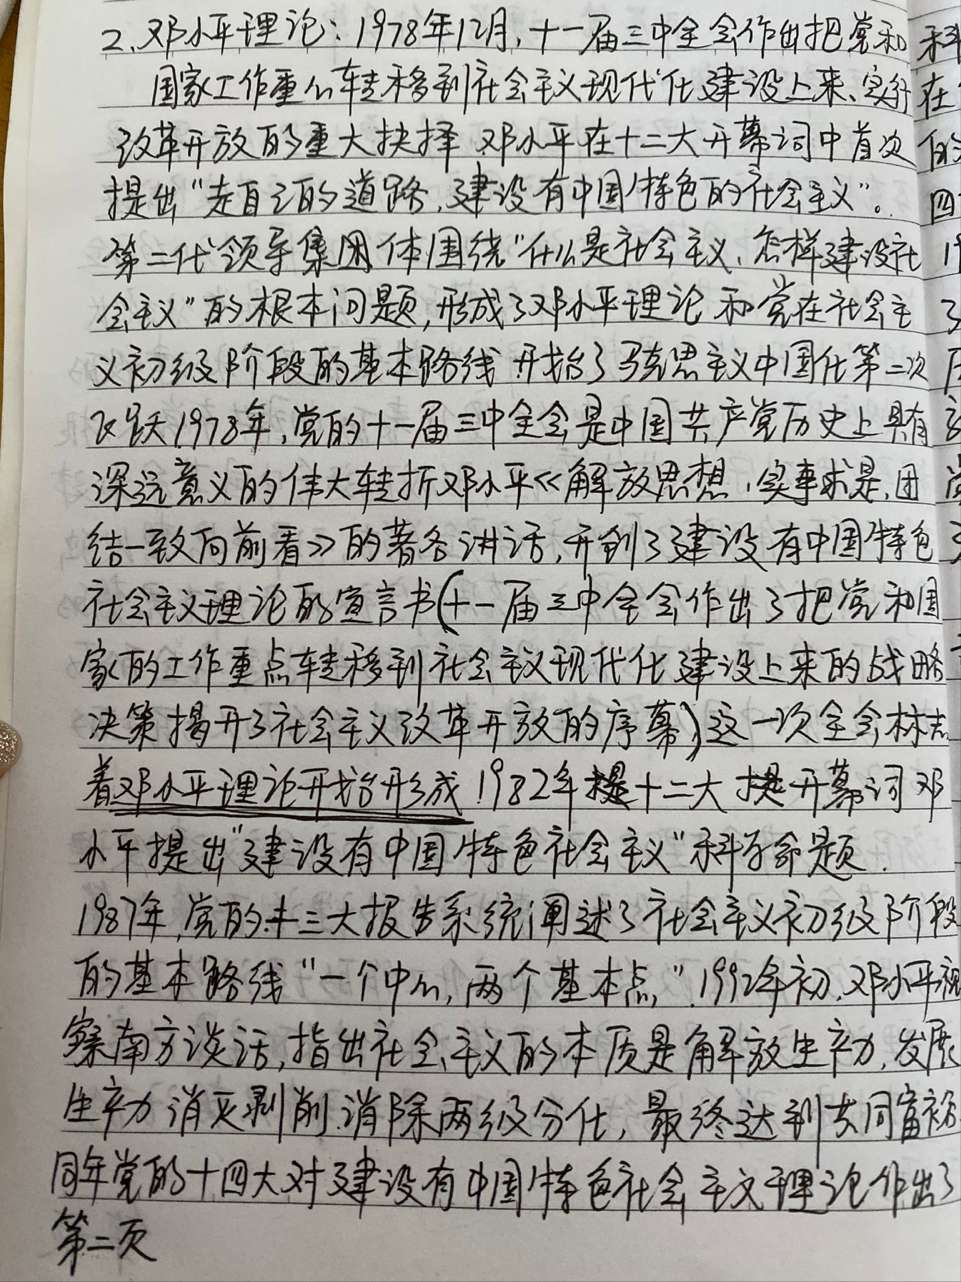 2.邓小平理论：1978年12月,十一届三中全会作出把党和
国家工作重心转移到社会主义现代化建设上来、实行
改革开放的重大抉择 邓小平在十二大开幕词中首次
提出“走自己的道路,建设有中国特色的社会主义”。
第二代领导集团体围绕“什么是社会主义、怎样建设社
会主义”的根本问题,形成了邓小平理论 和党在社会主
义初级阶段的基本路线 开始了马克思主义中国化第二次
飞跃1978年,党的十一届三中全会是中国共产党历史上具有
深远意义的伟大转折邓小平《解放思想,实事求是,团
结一致向前看》的著名讲话,开创了建设有中国特色
社会主义理论的宣言书(十一届三中全会作出了把党和国
家的工作重点转移到社会主义现代化建设上来的战略
决策揭开了社会主义改革开放的序幕)这一次全会标志
着邓小平理论开始形成 1982年 十二大 开幕词邓
小平提出“建设有中国特色社会主义”科学命题.
1987年,党的十三大报告系统阐述了社会主义初级阶段
的基本路线“一个中心,两个基本点”.1992年初.邓小平视
察南方谈话,指出社会主义的本质是解放生产力,发展
生产力 消灭剥削.消除两级分化,最终达到共同富裕
同年党的十四大对建设有中国特色社会主义理论作出了
第二页
科
在
的
四
19